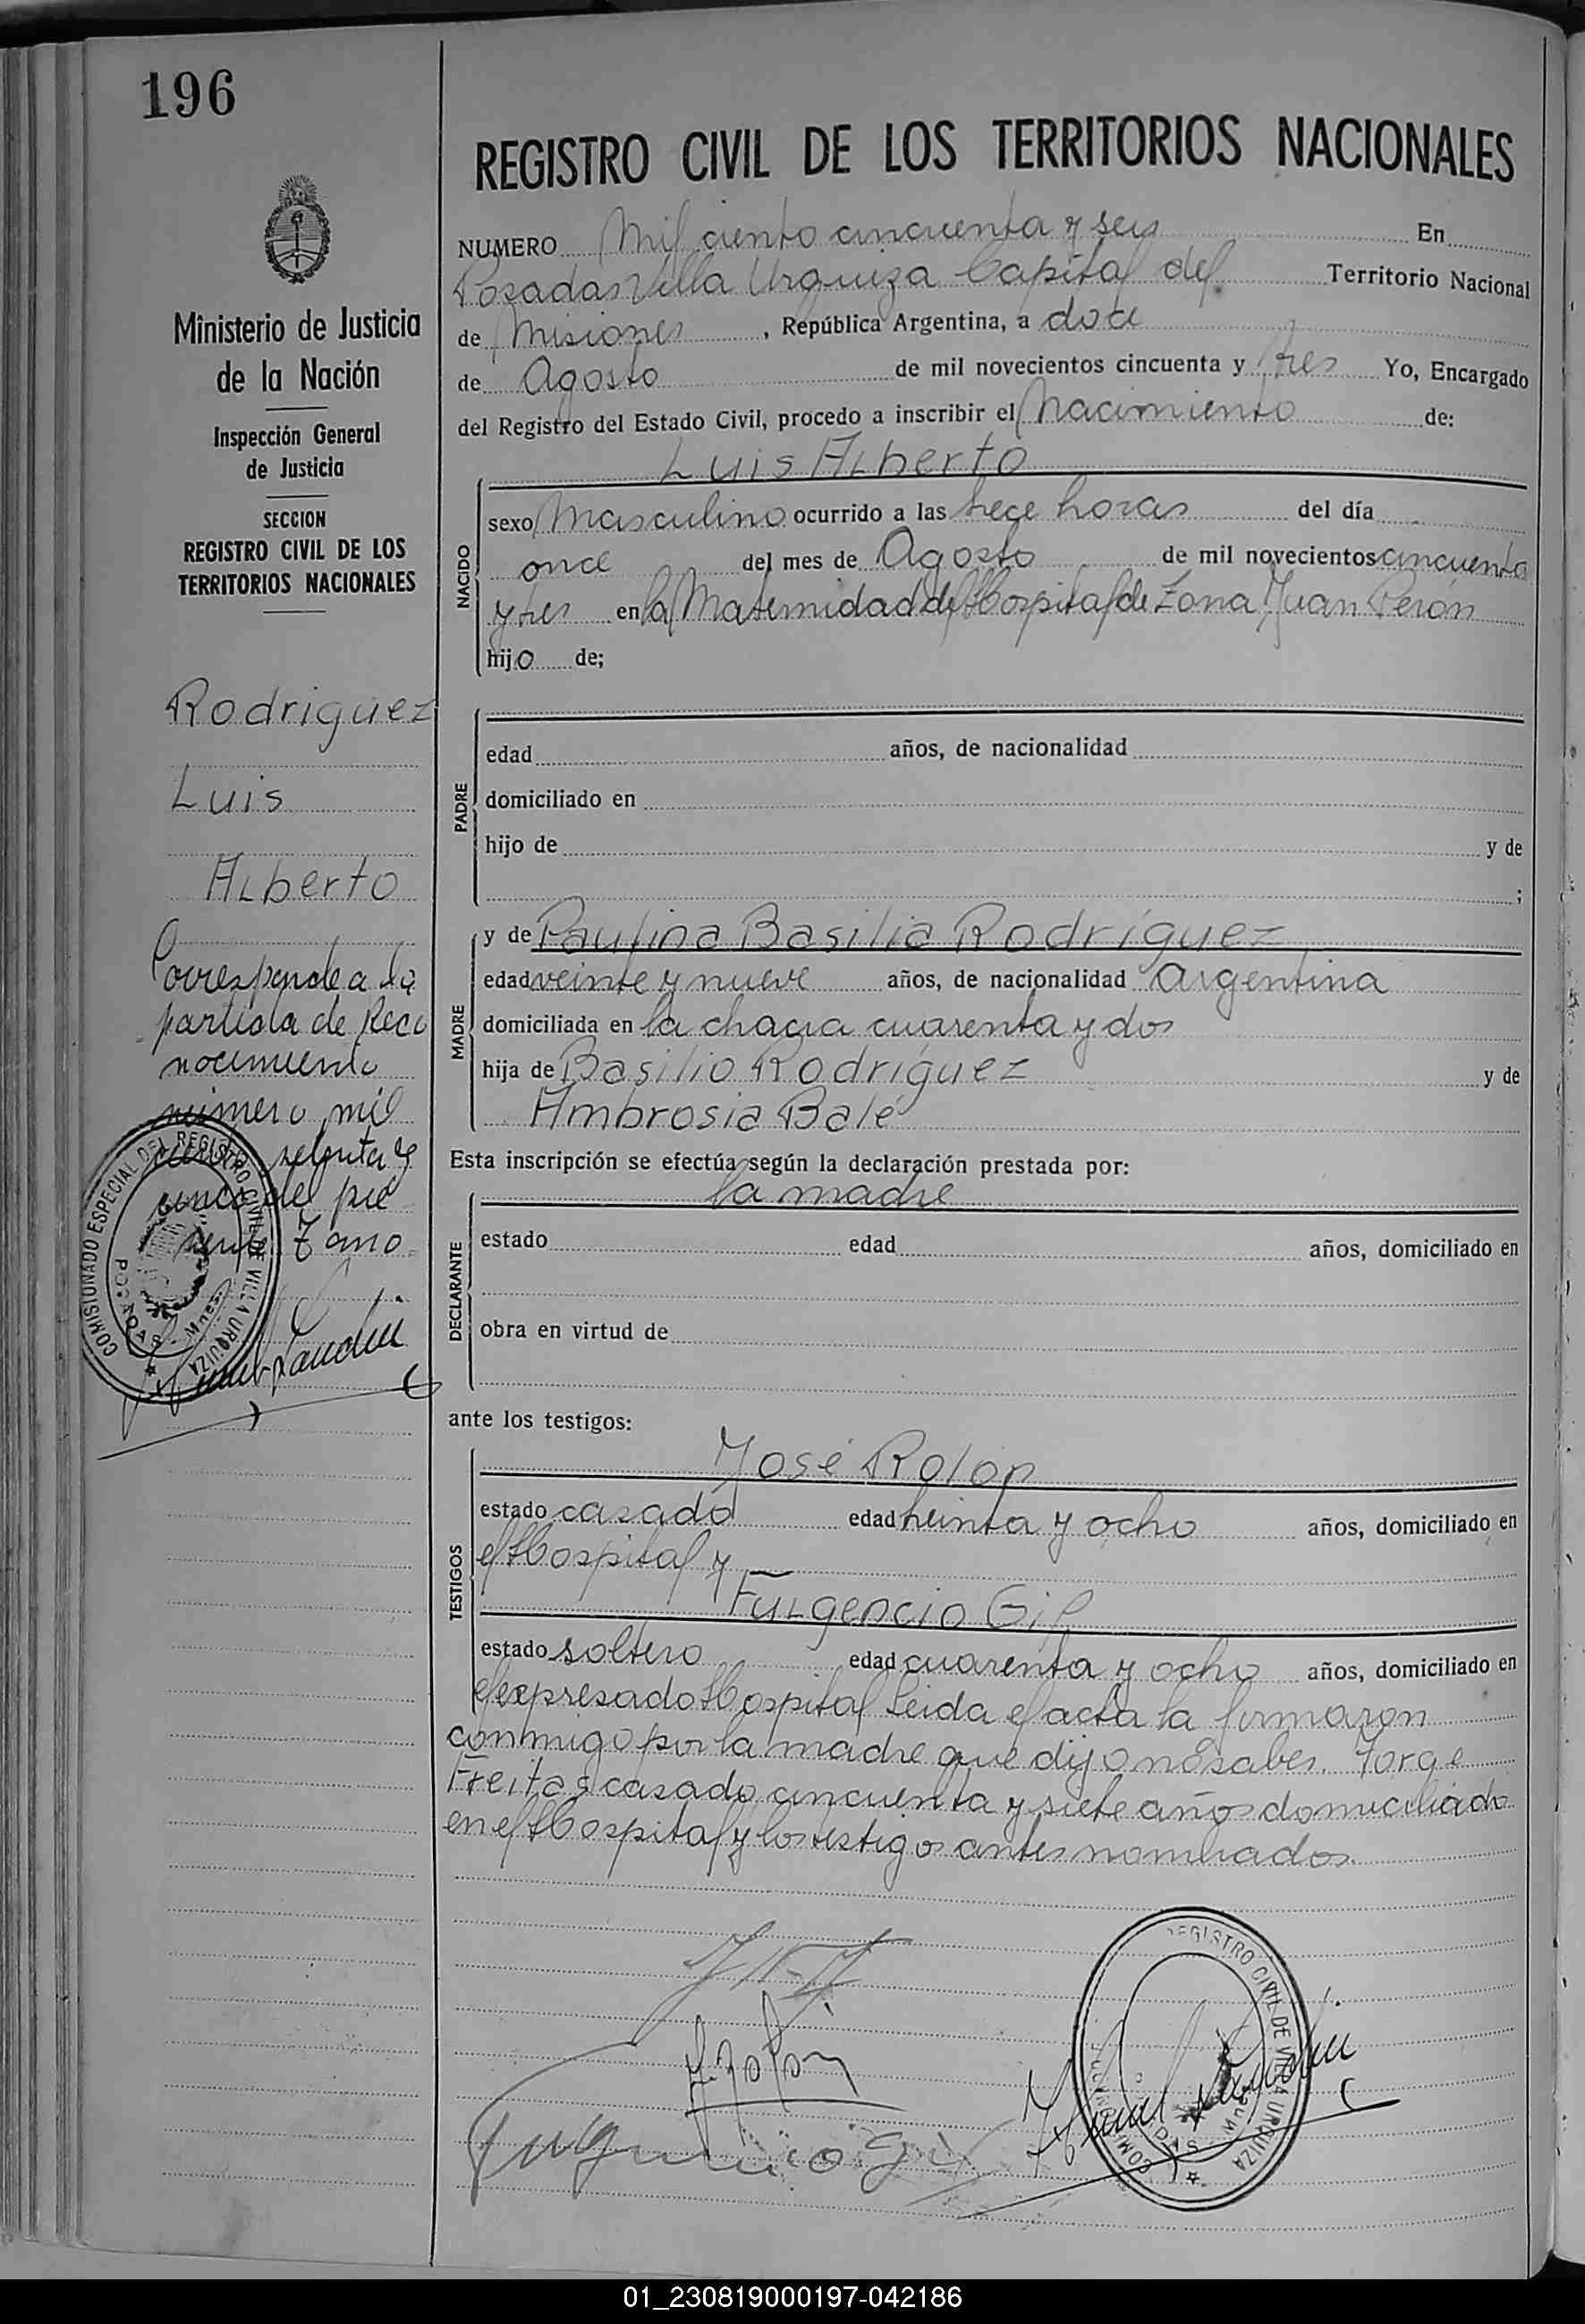 196
REGISTRO CIVIL DE LOS TERRITORIOS NACIONALES
Ministerio de Justicia
de la Nación
Inspección General
de Justicia
SECCION
REGISTRO CIVIL DE LOS
TERRITORIOS NACIONALES
Rodriguez
Luis
Alberto
Corresponde a la
partida de Reco
nocimiento
número mil
setenta y
cinco del pre
sente año
COMISIONADO ESPECIAL DEL REGISTRO CIVIL DE VILLA URQUIZA
POSADAS - Mnes.
NUMERO Mil ciento cincuenta y seis En
Posadas Villa Urquiza Capital del Territorio Nacional
de Misiones, República Argentina, a doce
de Agosto de mil novecientos cincuenta y tres Yo, Encargado
del Registro del Estado Civil, procedo a inscribir el Nacimiento de:
Luis Alberto
NACIDO
sexo Masculino ocurrido a las trece horas del día
once del mes de Agosto de mil novecientos cincuenta
y tres en la Maternidad del Hospital de Zona Juan Perón
hijo de;
PADRE
edad años, de nacionalidad
domiciliado en
hijo de y de
;
MADRE
y de Paulina Basilia Rodríguez
edad veinte y nueve años, de nacionalidad Argentina
domiciliada en la chacra cuarenta y dos
hija de Basilio Rodríguez y de
Ambrosia Balé
Esta inscripción se efectúa según la declaración prestada por:
la madre
DECLARANTE
estado edad años, domiciliado en
obra en virtud de
ante los testigos:
TESTIGOS
José Rolon
estado casado edad treinta y ocho años, domiciliado en
el Hospital y
Fulgencio Gil
estado soltero edad cuarenta y ocho años, domiciliado en
el expresado Hospital Leida el acta la firmaron
conmigo por la madre que dijo no saber. Jorge
Freitas casado cincuenta y siete años domiciliado
en el Hospital y los testigos antes nombrados.
J. Rolon
Fulgencio Gil
REGISTRO CIVIL DE VILLA URQUIZA
01_230819000197-042186